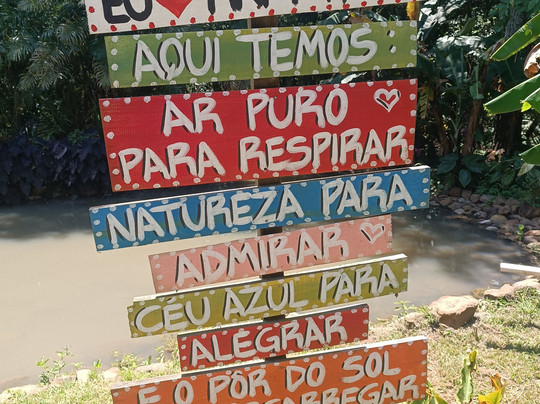 EU
AQUI TEMOS:
ÁR PURO
PARA RESPIRAR
NATUREZA PARA
ADMIRAR
CÉU AZUL PARA
ALEGRAR
E O PÔR DO SOL